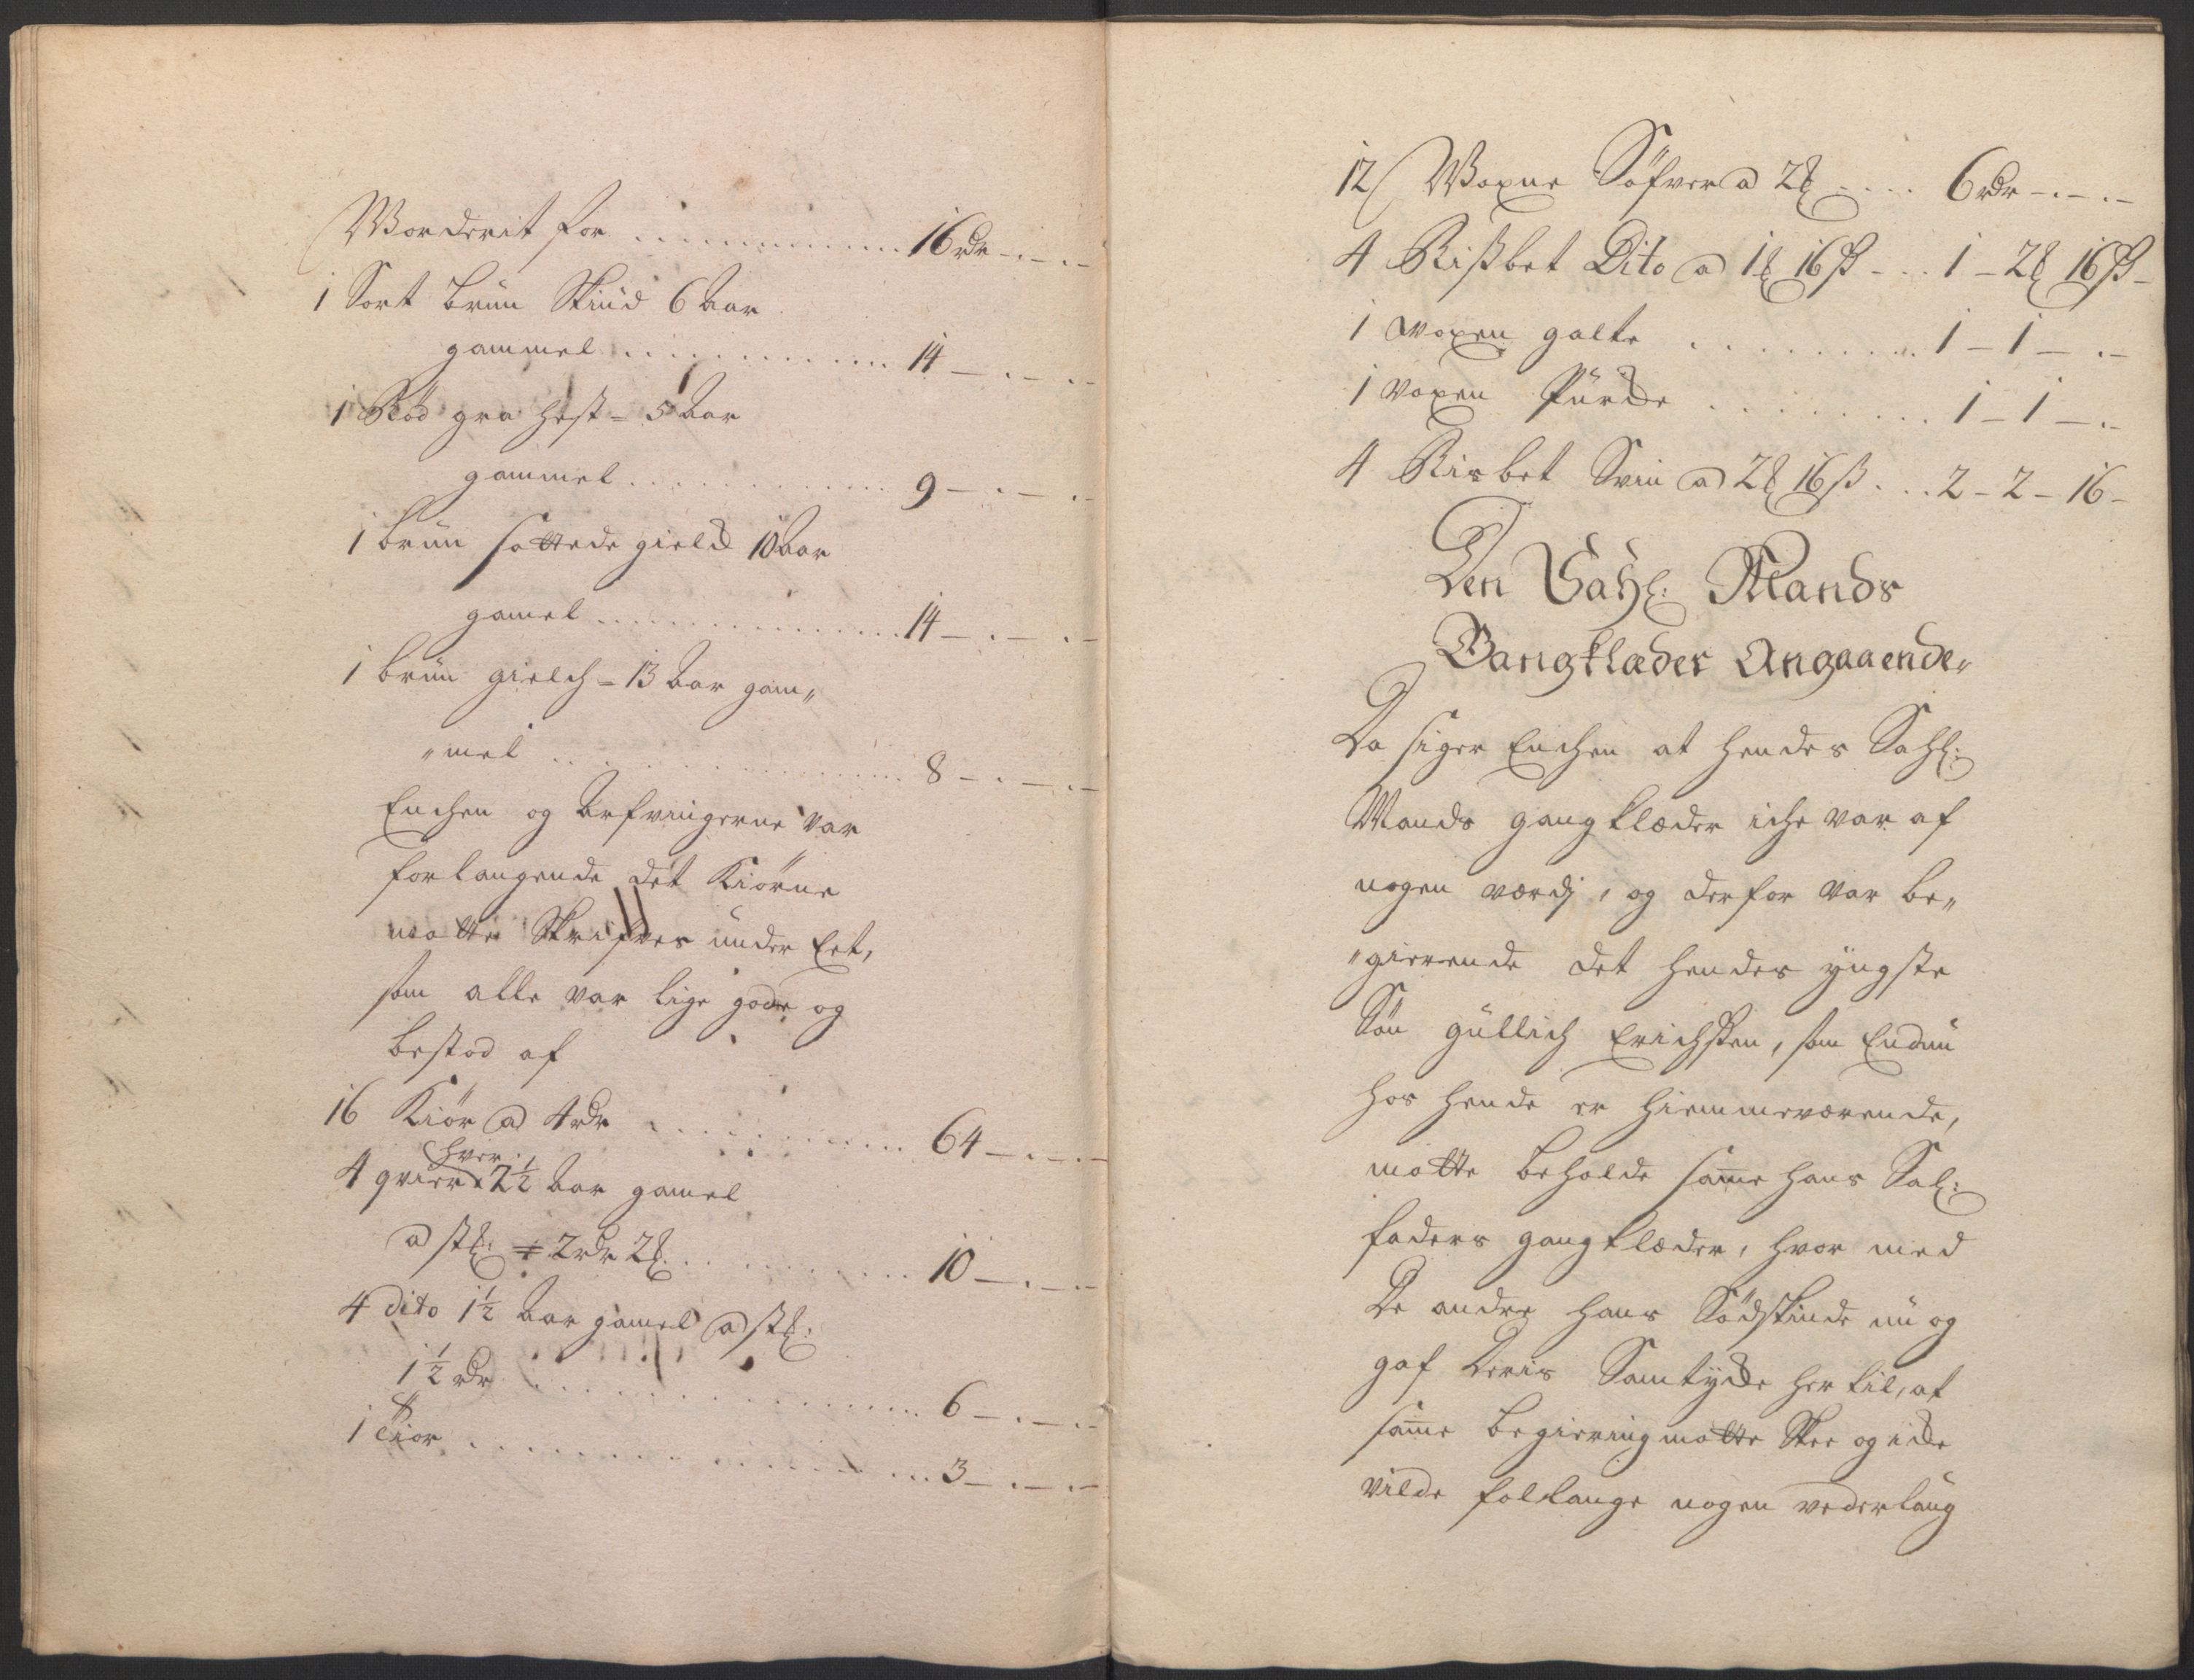 Worderit for ............ 16 rdr - . - . -
1 Sort brun Skiud 6 aar
gammel ............ 14 - . - . -
1 Röd gra Hest - 5 aar
gammel ............ 9 - . - . -
1 brun sottede gield 10 aar
gamel ............ 14 - . - . -
1 brun gielch - 13 aar gam„
„mel ............ 8 - . - . -
Enchen og Arfvingerne var
forlangende det Kiörne
motte Skrifves under Eet,
som alle var lige gode og
bestod af
16 Kiör a 4 rdr ............ 64 - . - . -
hver
4 qvier 2½ aar gamel
a st: 2 rdr 2 ............ 10 - . - . -
4 dito 1½ aar gamel a st:
1½ rdr ............ 6 - . - . -
1 Tior ............ 3 - . - . -
12 Woxne Söfver a 2 .... 6 rdr - . - . -
4 Rißbet Dito a 1 16 ß - .. 1 - 2 16 ß -
1 woxen galte ............ 1 - 1 - . -
1 voxen Purcke ............ 1 - 1 - . -
4 Risbet Svin a 2 16 ß ... 2 - 2 - 16 -
Den Sahl: Mands
Gangklæder Angaaende„
Da siger Enchen at hendes Sahl:
Mands gangklæder iche var af
nogen værdj, og derfor var be„
„gierende det hendes yngste
Sön Gullich Erichsen, som Endnu
hos hende er hiemmeværende,
motte beholde same hans Sal:
faders gangklæder, hvor med
De andre hans Södskinde nu og
gaf Deris Samtycke her til, at
same begiering motte Skee og icke
vilde forlange nogen vederlaug